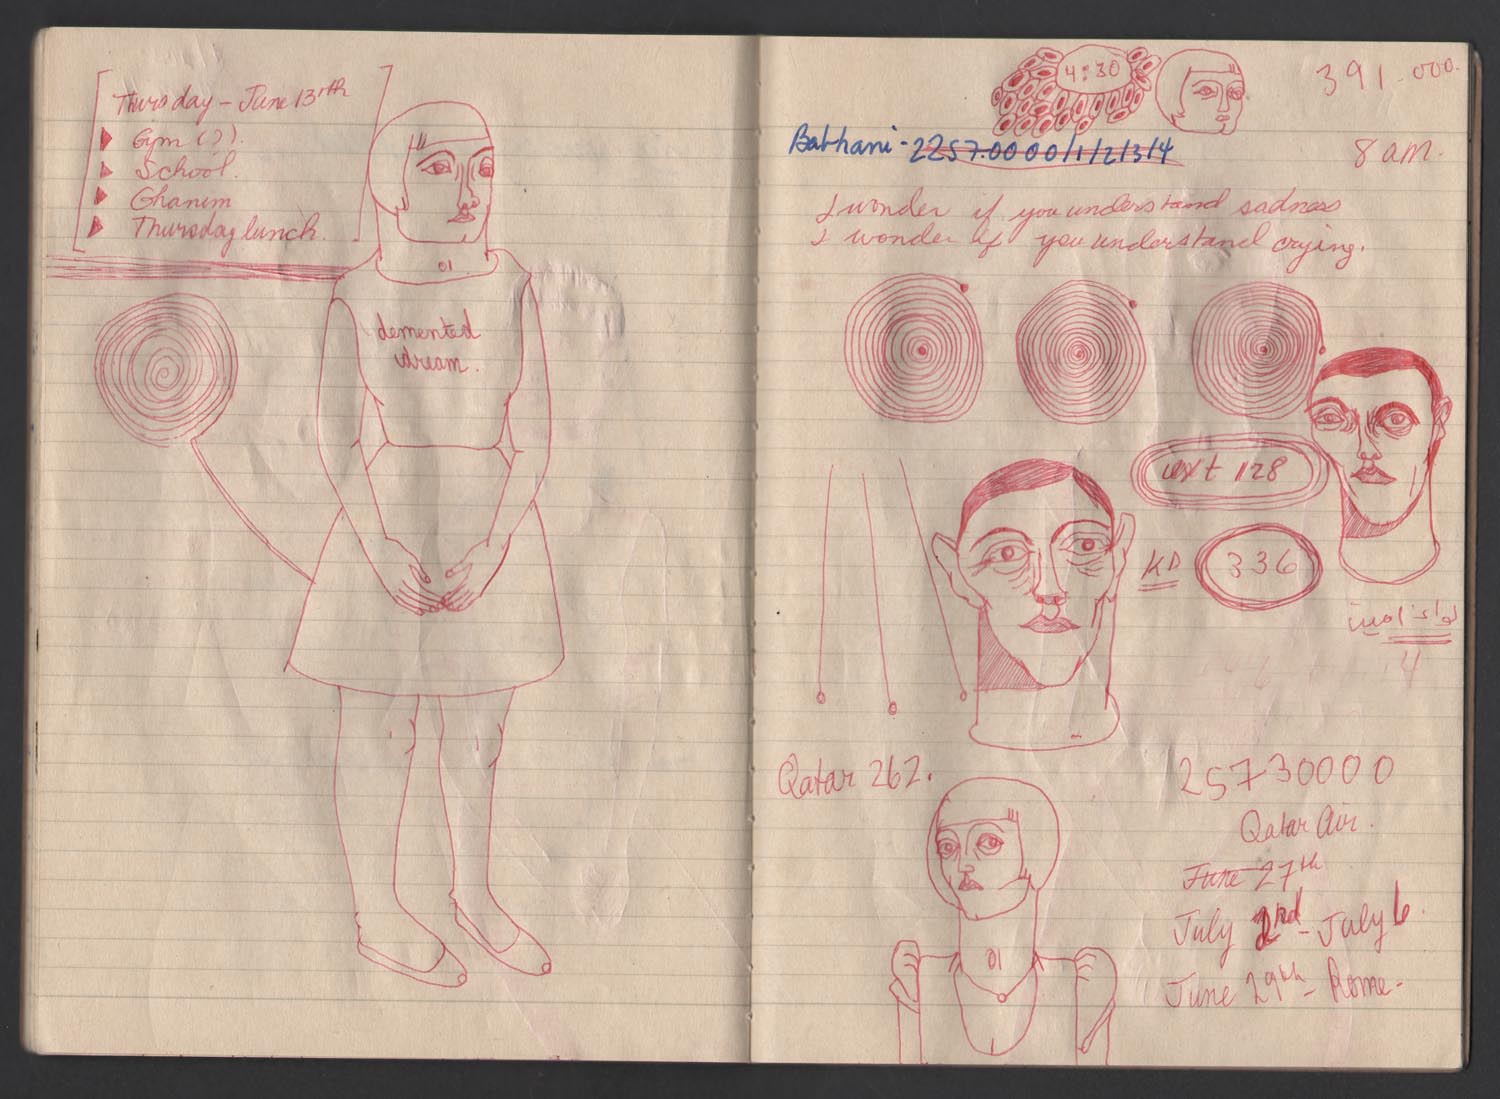 Thursday - June 13rth
Gym (?).
School.
Ghanim
Thursday lunch.
01
demented
dream.
4:30
391.000.
Babhani - 2257.0000/1/2/3/4
8 am.
I wonder if you understand sadness
I wonder if you understand crying.
ext 128
KD 336
4
Qatar 262.
25730000
Qatar Air.
June 27th
July 2rd - July 6.
June 29th - Rome -
01